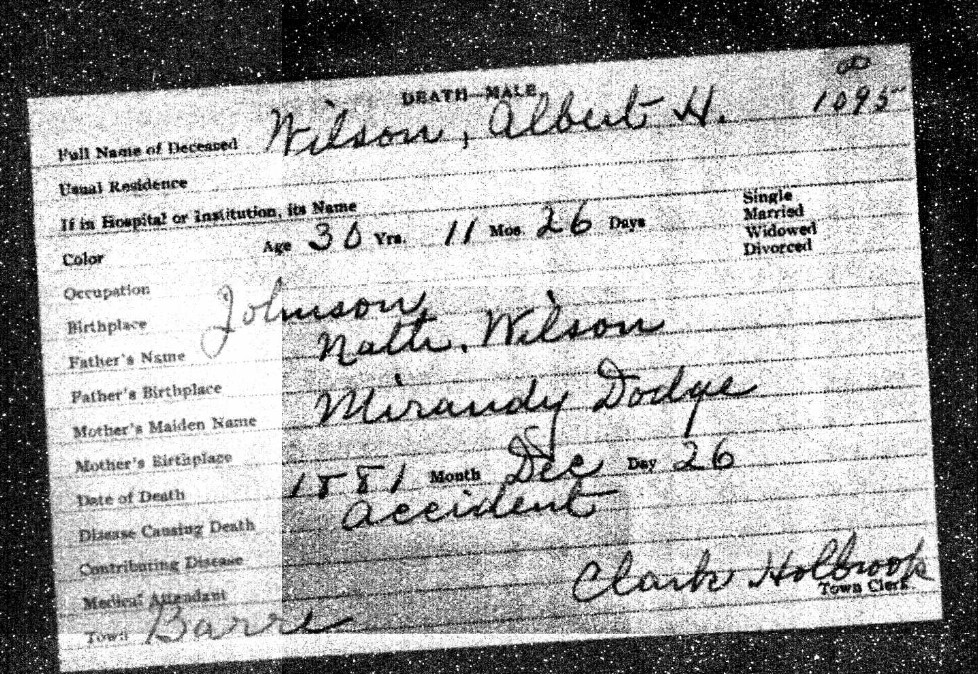 DEATH—MALE.
Full Name of Deceased Wilson, Albert H. 1095
Usual Residence
If in Hospital or Institution, its Name
Color Age 30 Yrs. 11 Mos 26 Days Single Married Widowed Divorced
Occupation
Birthplace Johnson
Father's Name Nath. Wilson
Father's Birthplace
Mother's Maiden Name Mirandy Dodge
Mother's Birthplace
Date of Death 1881 Month Dec Day 26
Disease Causing Death accident
Contributing Disease
Medical Attendant Clark Holbrook
Town Barre Town Clerk